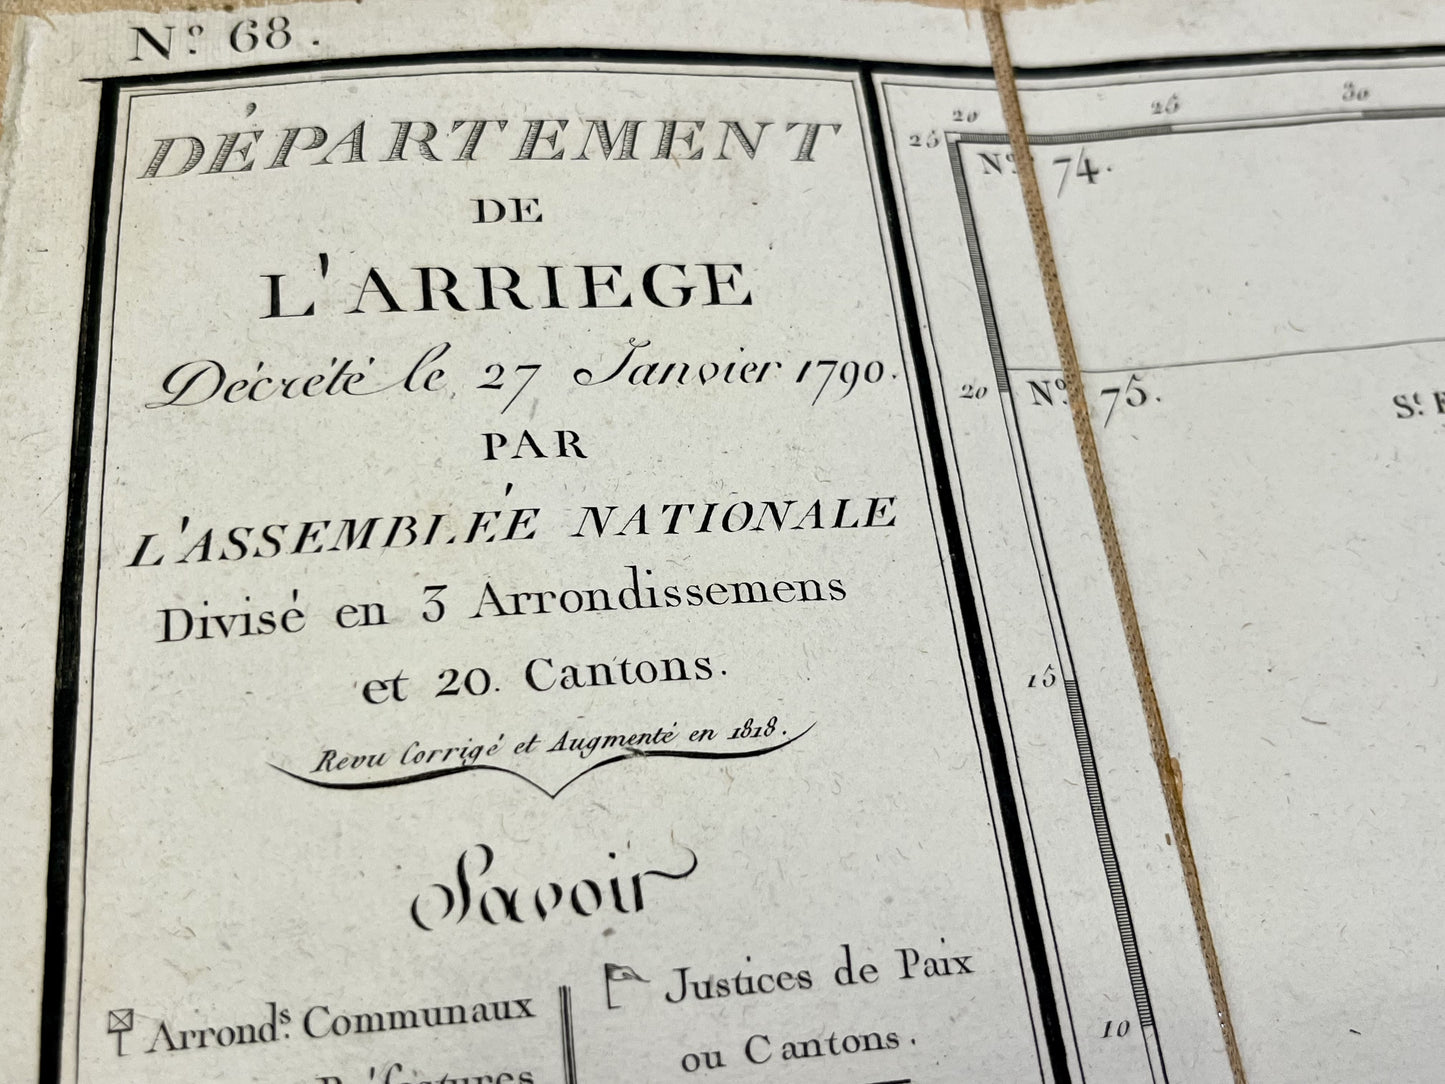 N.º 68.
DÉPARTEMENT
DE
L'ARRIEGE
Décrété le 27 Janvier 1790.
PAR
L'ASSEMBLÉE NATIONALE
Divisé en 3 Arrondissemens
et 20. Cantons.
Revu Corrigé et Augmenté en 1818.
Savoir
Arrond.s Communaux
Justices de Paix
ou Cantons.
20 25 30
25
N.º 74.
20
N.º 75.
S.t
15
10